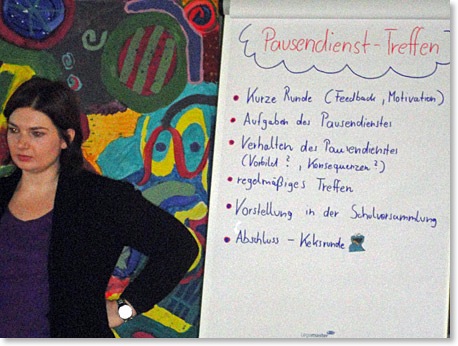 Pausendienst-Treffen
Kurze Runde (Feedback, Motivation)
Aufgaben des Pausendienstes
Verhalten des Pausendienstes
(Vorbild?, Konsequenzen?)
regelmäßiges Treffen
Vorstellung in der Schulversammlung
Abschluss - Keksrunde
legamaster